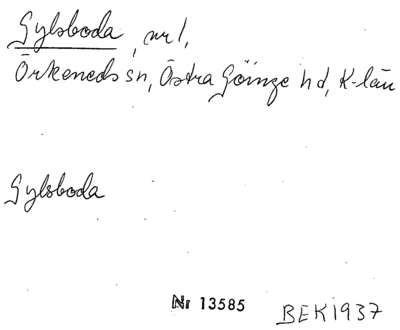 Gylsboda, nr 1,
Örkeneds sn, Östra Göinge hd, K-län
Gylsboda
Nr 13585
BEK 1937